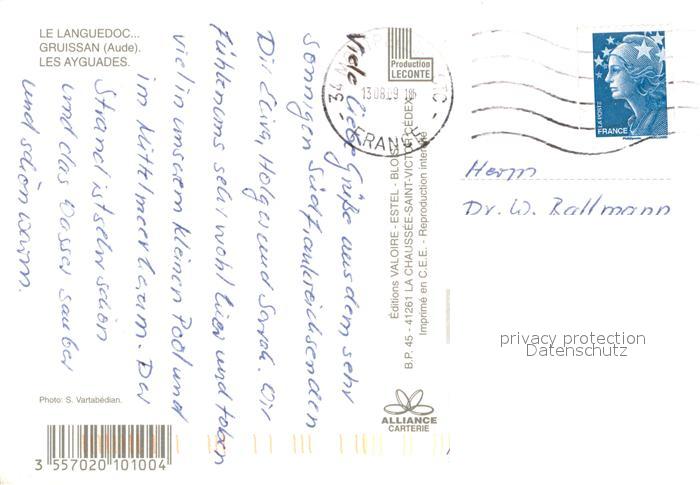 LE LANGUEDOC...
GRUISSAN (Aude).
LES AYGUADES.
Viele liebe Grüße aus dem sehr
sonnigen Südfrankreich senden
Dir Elina, Holger und Sarah. Wir
fühlen uns sehr wohl hier und toben
viel in unserem kleinen Pool und
im Mittelmeer herum. Der
Strand ist sehr schön
und das Wasser sauber
und schön warm.
Photo: S. Vartabédian.
3 557020 101004
Production
LECONTE
13 08 09
FRANCE
Éditions VALOIRE - ESTEL - BLOIS
B.P. 45 - 41261 LA CHAUSSÉE-SAINT-VICTOR CEDEX
Imprimé en C.E.E. - Reproduction interdite
ALLIANCE
CARTERIE
LA POSTE
FRANCE
Herrn
Dr. W. Rallmann
privacy protection
Datenschutz